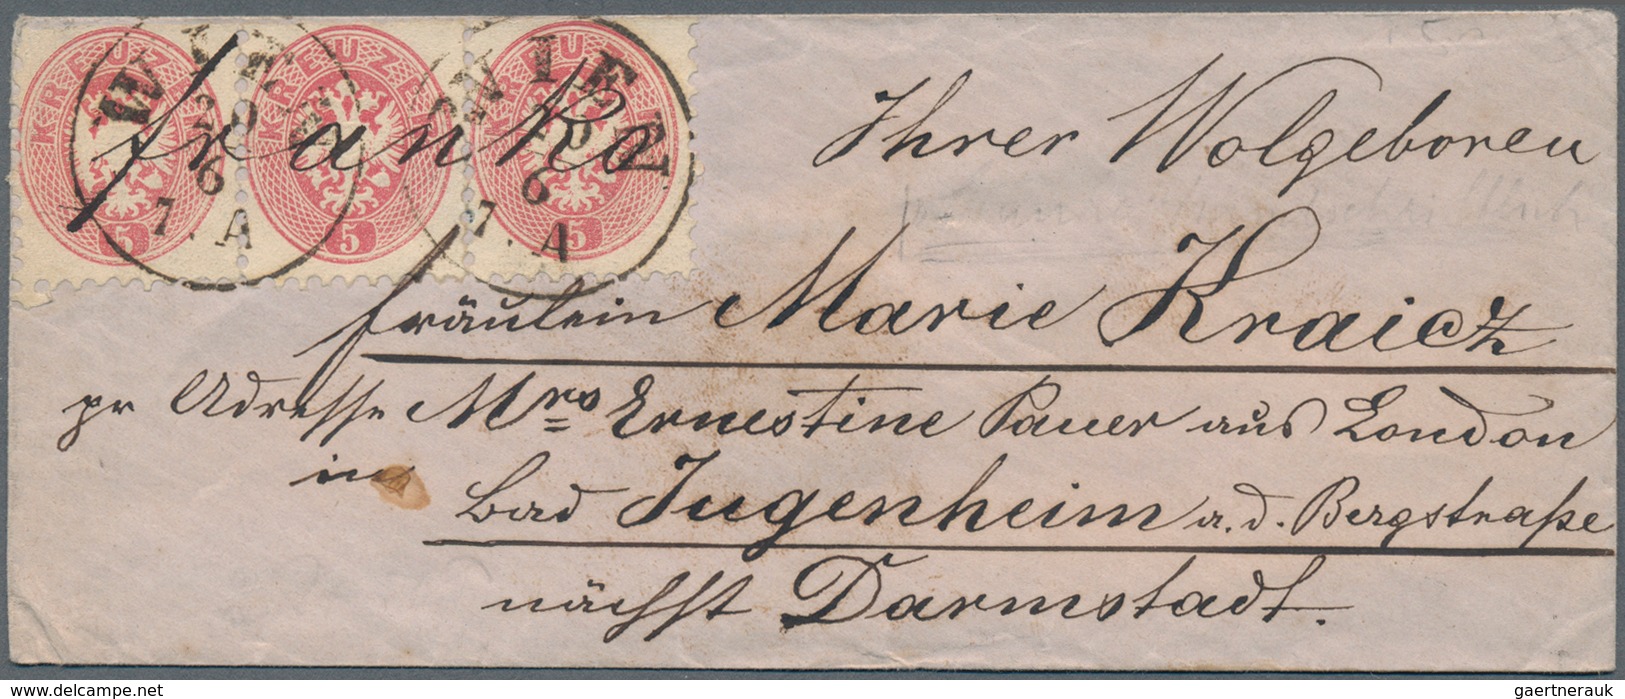 KREUZER KREUZER KREUZER
WIEN WIEN
franko
6 6
7. A 7. A
5 5 5
Ihrer Wolgeboren
Fräulein Marie Kraicz
pr Adresse Mrs Ernestine Pauer aus London
in
Bad Jugenheim a. d. Bergstraße
nächst Darmstadt.
www.delcampe.net
gaertnerauk